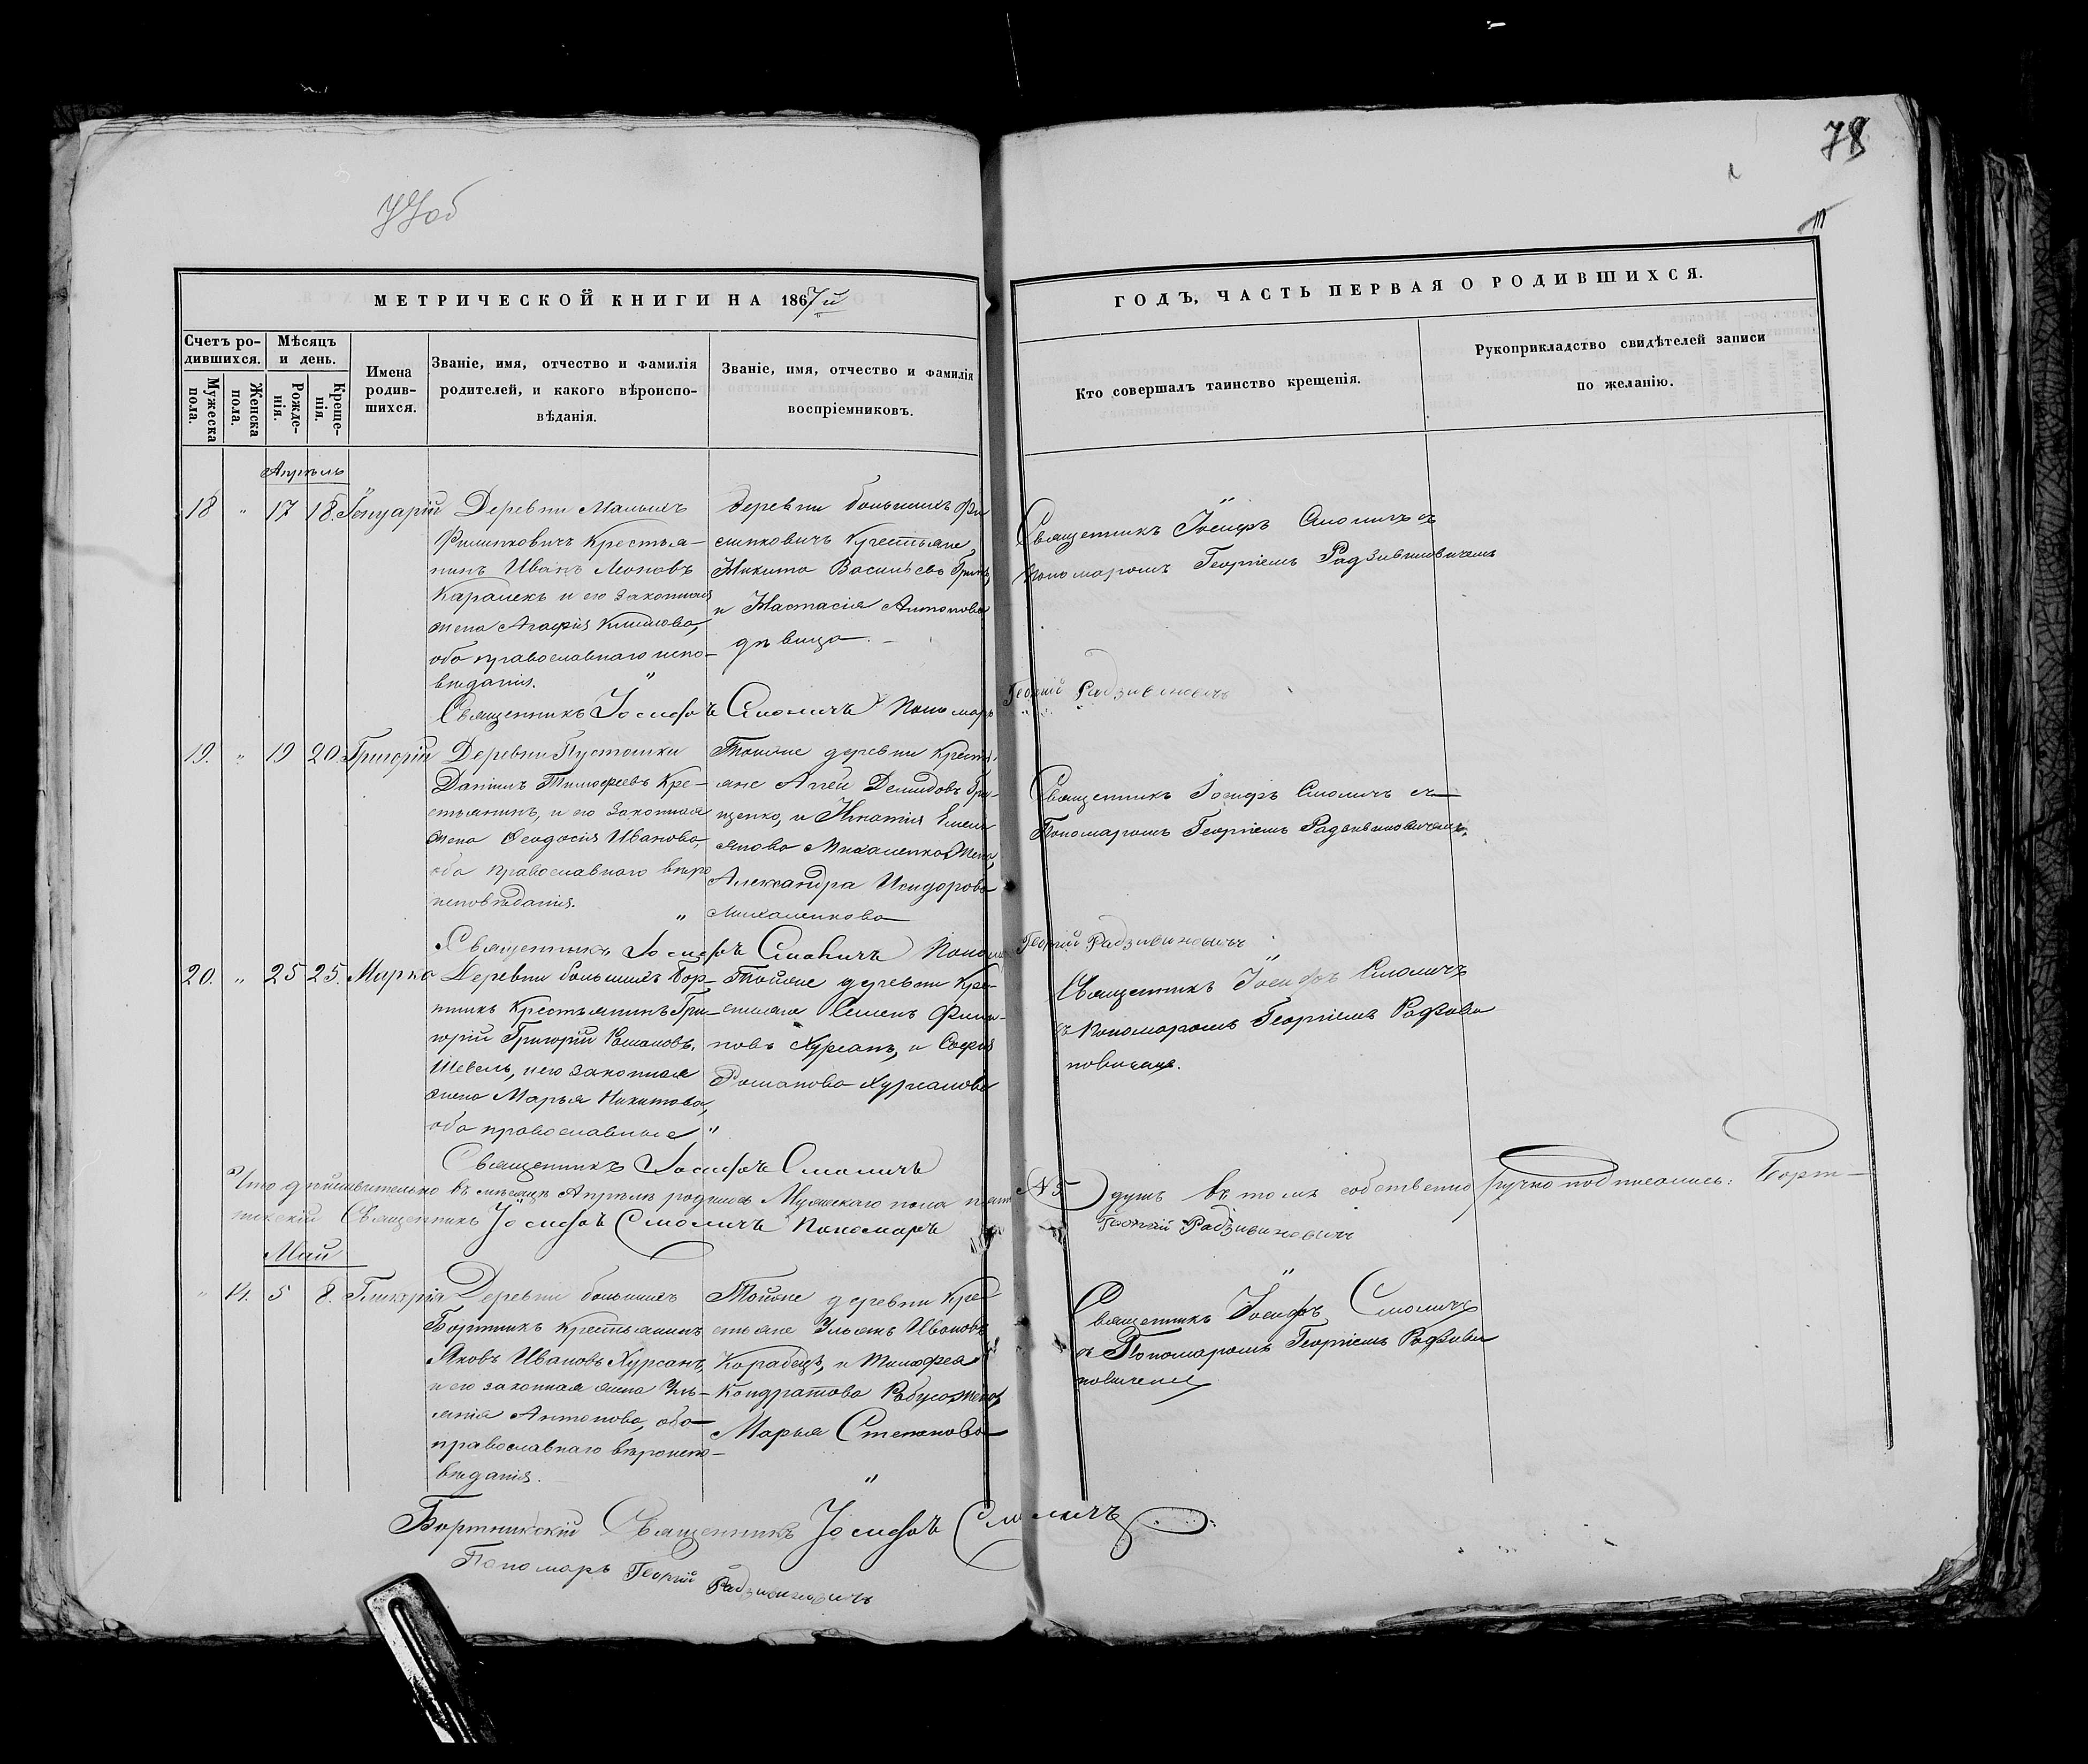 77об
78
МЕТРИЧЕСКОЙ КНИГИ НА 1867й
ГОДЪ, ЧАСТЬ ПЕРВАЯ О РОДИВШИХСЯ.
Счетъ ро-
дившихся.
Мужеска
пола.
Женска
пола.
Мѣсяцъ
и день.
Рожде-
нія.
Креще-
нія.
Имена
родив-
шихся.
Званіе, имя, отчество и фамилія
родителей, и какого вѣроиспо-
вѣданія.
Званіе, имя, отчество и фамилія
воспріемниковъ.
Кто совершалъ таинство крещенія.
Рукоприкладство свидѣтелей записи
по желанію.
Апрѣль
18 " 17 18. Іѳнуарій
Деревни Малыхъ
Филиповичъ Крестья-
нинъ Иванъ
и его законная
жена Агафія Климова,
оба православнаго испо-
вѣданія.
деревни большихъ Фи
липовичъ Крестьяне
Никита Васильевъ
и Настасія Антонова
дѣвица
Священникъ Іосифъ Смоличъ съ
пономаромъ Георгіемъ Радзивиновичемъ
Священникъ Іосифъ Смоличъ Пономарь
Георгій Радзивиновичъ
19. " 19 20. Григорій
Деревни Пустошки
Даніилъ Тимофеевъ Кре-
стьянинъ, и его законная
жена Феодосія Иванова,
оба православнаго вѣро
исповѣданія.
Тойже деревни Крестья
яне Агей Демидовъ Гри-
щенко, и Игнатія Емель
янова Михаленка жена,
Александра Исидорова
Михаленкова
Священникъ Іосифъ Смоличъ съ
Пономаромъ Георгіемъ Радзивиновичемъ.
Священникъ Іосифъ Смоличъ Поном
Георгій Радзивиновичъ
20. " 25 25. Марко
Деревни большихъ Бор-
тникъ Крестьянинъ Гри-
горій Григорій Романовъ
Шевель, и его законная
жена Марья Никитова,
оба православные "
Тойже деревни Кре-
стьяне Семенъ Филип-
повъ Хурсанъ, и Софія
Романова Хурсанова
Священникъ Іосифъ Смоличъ
съ Пономаромъ Георгіемъ Радзиви
новичемъ.
Священникъ Іосифъ Смоличъ
Что дѣйствительно въ мѣсяцѣ Апрѣлѣ родилось Мужескаго пола пять №5 душъ въ томъ собственно ручно подписались: Борт-
никскій Священникъ Іосифъ Смоличъ Пономарь Георгій Радзивиновичъ
Май
" 14. 5 8. Гликерія
Деревни большихъ
Бортникъ Крестьянинъ
Яковъ Ивановъ Хурсанъ,
и его законная жена Улья-
нія Антонова, оба
православнаго вѣроиспо-
вѣданія.
Тойже деревни Кре
стьяне Ульянъ Ивановъ
Карабецъ, и Тимофея
Кондратова жена
Марья Степанова
Священникъ Іосифъ Смоличъ
съ Пономаромъ Георгіемъ Радзиви
новичемъ
Бортникскій Священникъ Іосифъ Смоличъ
Пономарь Георгій Радзивиновичъ